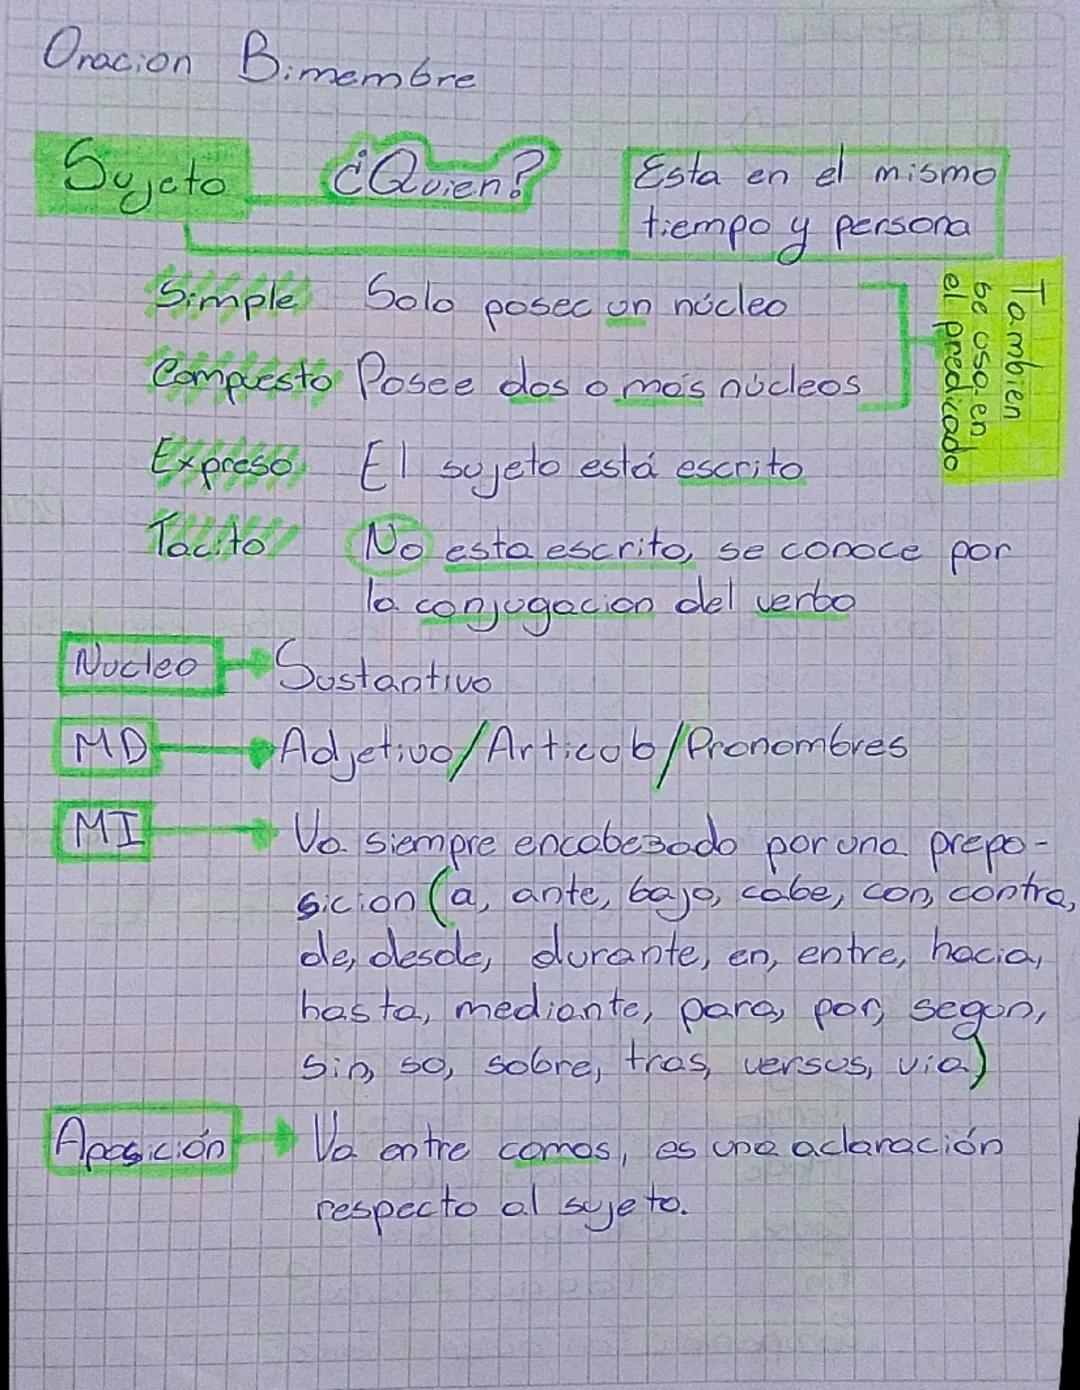 Oracion Bimembre
Sujeto ¿Quien? Esta en el mismo
tiempo y persona
Simple Solo posee un núcleo
Compuesto Posee dos o más núcleos
Tambien
se usa en
el predicado
Expreso El sujeto está escrito
Tacito No esta escrito, se conoce por
la conjugacion del verbo
Nucleo Sustantivo
MD Adjetivo/Articulo/Pronombres
MI Va siempre encabezado por una prepo-
sicion (a, ante, bajo, cabe, con, contra,
de, desde, durante, en, entre, hacia,
hasta, mediante, para, por, segun,
sin, so, sobre, tras, versus, via)
Aposición Va entre comas, es una aclaración
respecto al sujeto.